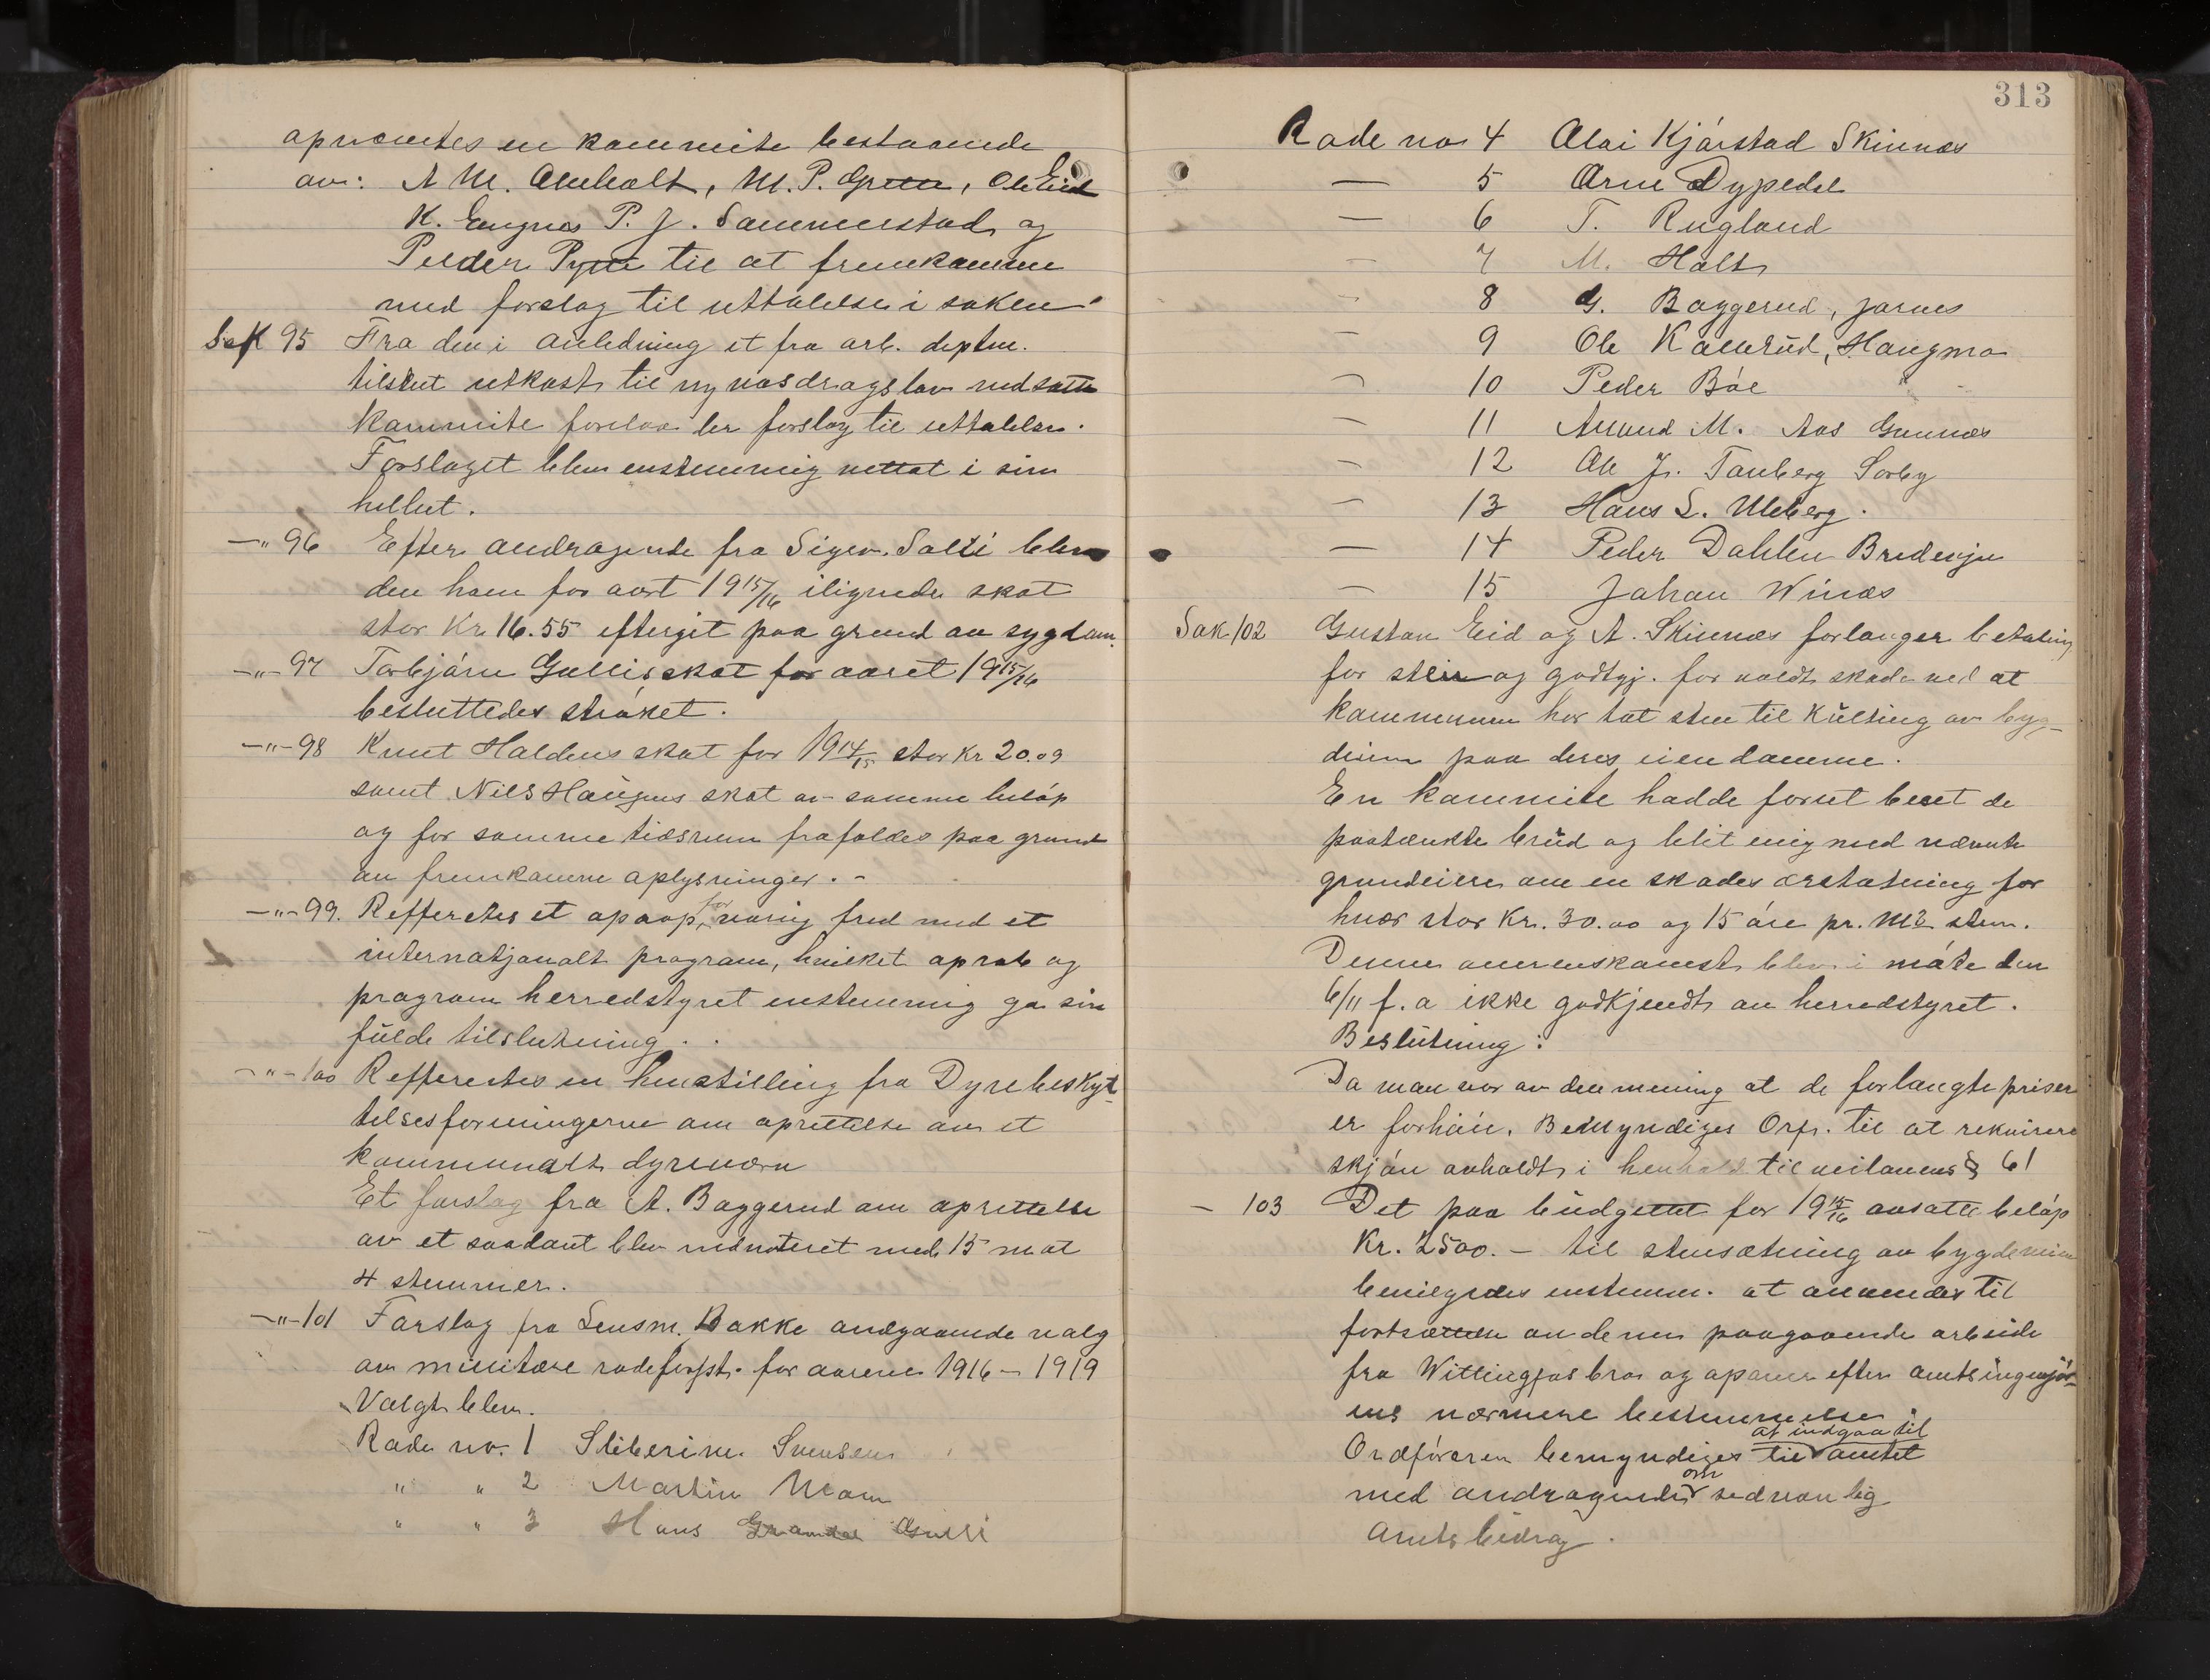 opnævntes en kommite bestaaende
av: A M. Amholt, M. P. Grette, Ole Eid
K. Engnes P. J. Sammerstad og
Peder Pytte til at fremkomme
med forslag til uttalelse i saken.
Sak 95 Fra den i anledning et fra arb. deptm.
tilstlet utkast til ny vasdragslov nedsatte
kommite forelaa der forslag til uttalelse.
Forslaget blev enstemmig vettat i sin
helhet.
—"- 96 Efter andragende fra Sigv. Salli blev
den ham for aaret 1915/16 ilignede skat
stor Kr 16.55 eftergit paa grund av sygdom.
—"- 97 Torbjörn Gullis skat for aaret 1915/16
besluttedes ströket.
—"- 98 Knut Haldens skat for 1914/15 stor Kr 20.09
samt Nils Haugens skat av samme belöp
og for samme tidsrum frafaldes paa grund
av fremkomne oplysninger. -
—"- 99. Reffertes et oprop for varig fred med et
internatjonalt program, hvilket oprob og
program herredstyret enstemmig ga sin
fulde tilslutning.
—"- 100 Refferertes en henstilling fra Dyrebeskyt-
telsesforeningerne om oprettelse av et
kommunalt dyrevern
Et forslag fra A. Baggerud om oprettelse
av et saadant blev nedvoteret med 15 mot
4 stemmer.
—"- 101 Forslag fra Lensm. Bakke angaaende valg
av militære rodeforst. for aarene 1916 - 1919
Valgt blev.
Rode no. 1 Sliberim. Svensen
" " 2 Martin Moen
" " 3 Hans Gulli
313
Rode no 4 Olai Kjörstad Skinnes
— 5 Arne Dypedal
— 6 T. Rugland
— 7 M. Holt
— 8 G. Baggerud, Jarnes
— 9 Ole Kallerud, Haugmo
— 10 Peder Böe "
— 11 Amund M. Aas Gunnes
— 12 Ole Jr. Tanberg Sorby
— 13 Hans L. Uleberg.
— 14 Peder Dahlen Bredesju
— 15 Johan Winæs
Sak 102 Gustav Eid og A. Skinnes forlanger betaling
for sten og godtgj. for voldt skade ved at
kommunen har tat sten til Kulting av byg-
deveien paa deres eiendomme.
En kommite hadde forut beset de
paatænkte brud og blit enig med nævnte
grundeiere om en skades erstatning for
hver stor Kr. 30.00 og 15 öre pr. M3 sten.
Denne overenskomst blev i möte den
6/11 f. a ikke godkjendt av herredstyret.
Beslutning:
Da man var av den mening at de forlangte priser
er forhöie. Bemyndiges Orf. til at rekvirere
skjön avholdt i henhold til veilovens § 61
— 103 Det paa budgettet for 1915/16 avsatte belöp
Kr. 2500. - til stensætning av bygdeveien
bevilgedes enstemm. at anvendes til
fortsættelse av denne paagaaende arbeide
fra Wittingfos bro og opover efter amtsingenjör-
ens nærmere bestemmelse
Ordföreren bemyndiges til at indgaa til amtet
med andragende om sedvanlig
Amtsbidrag.